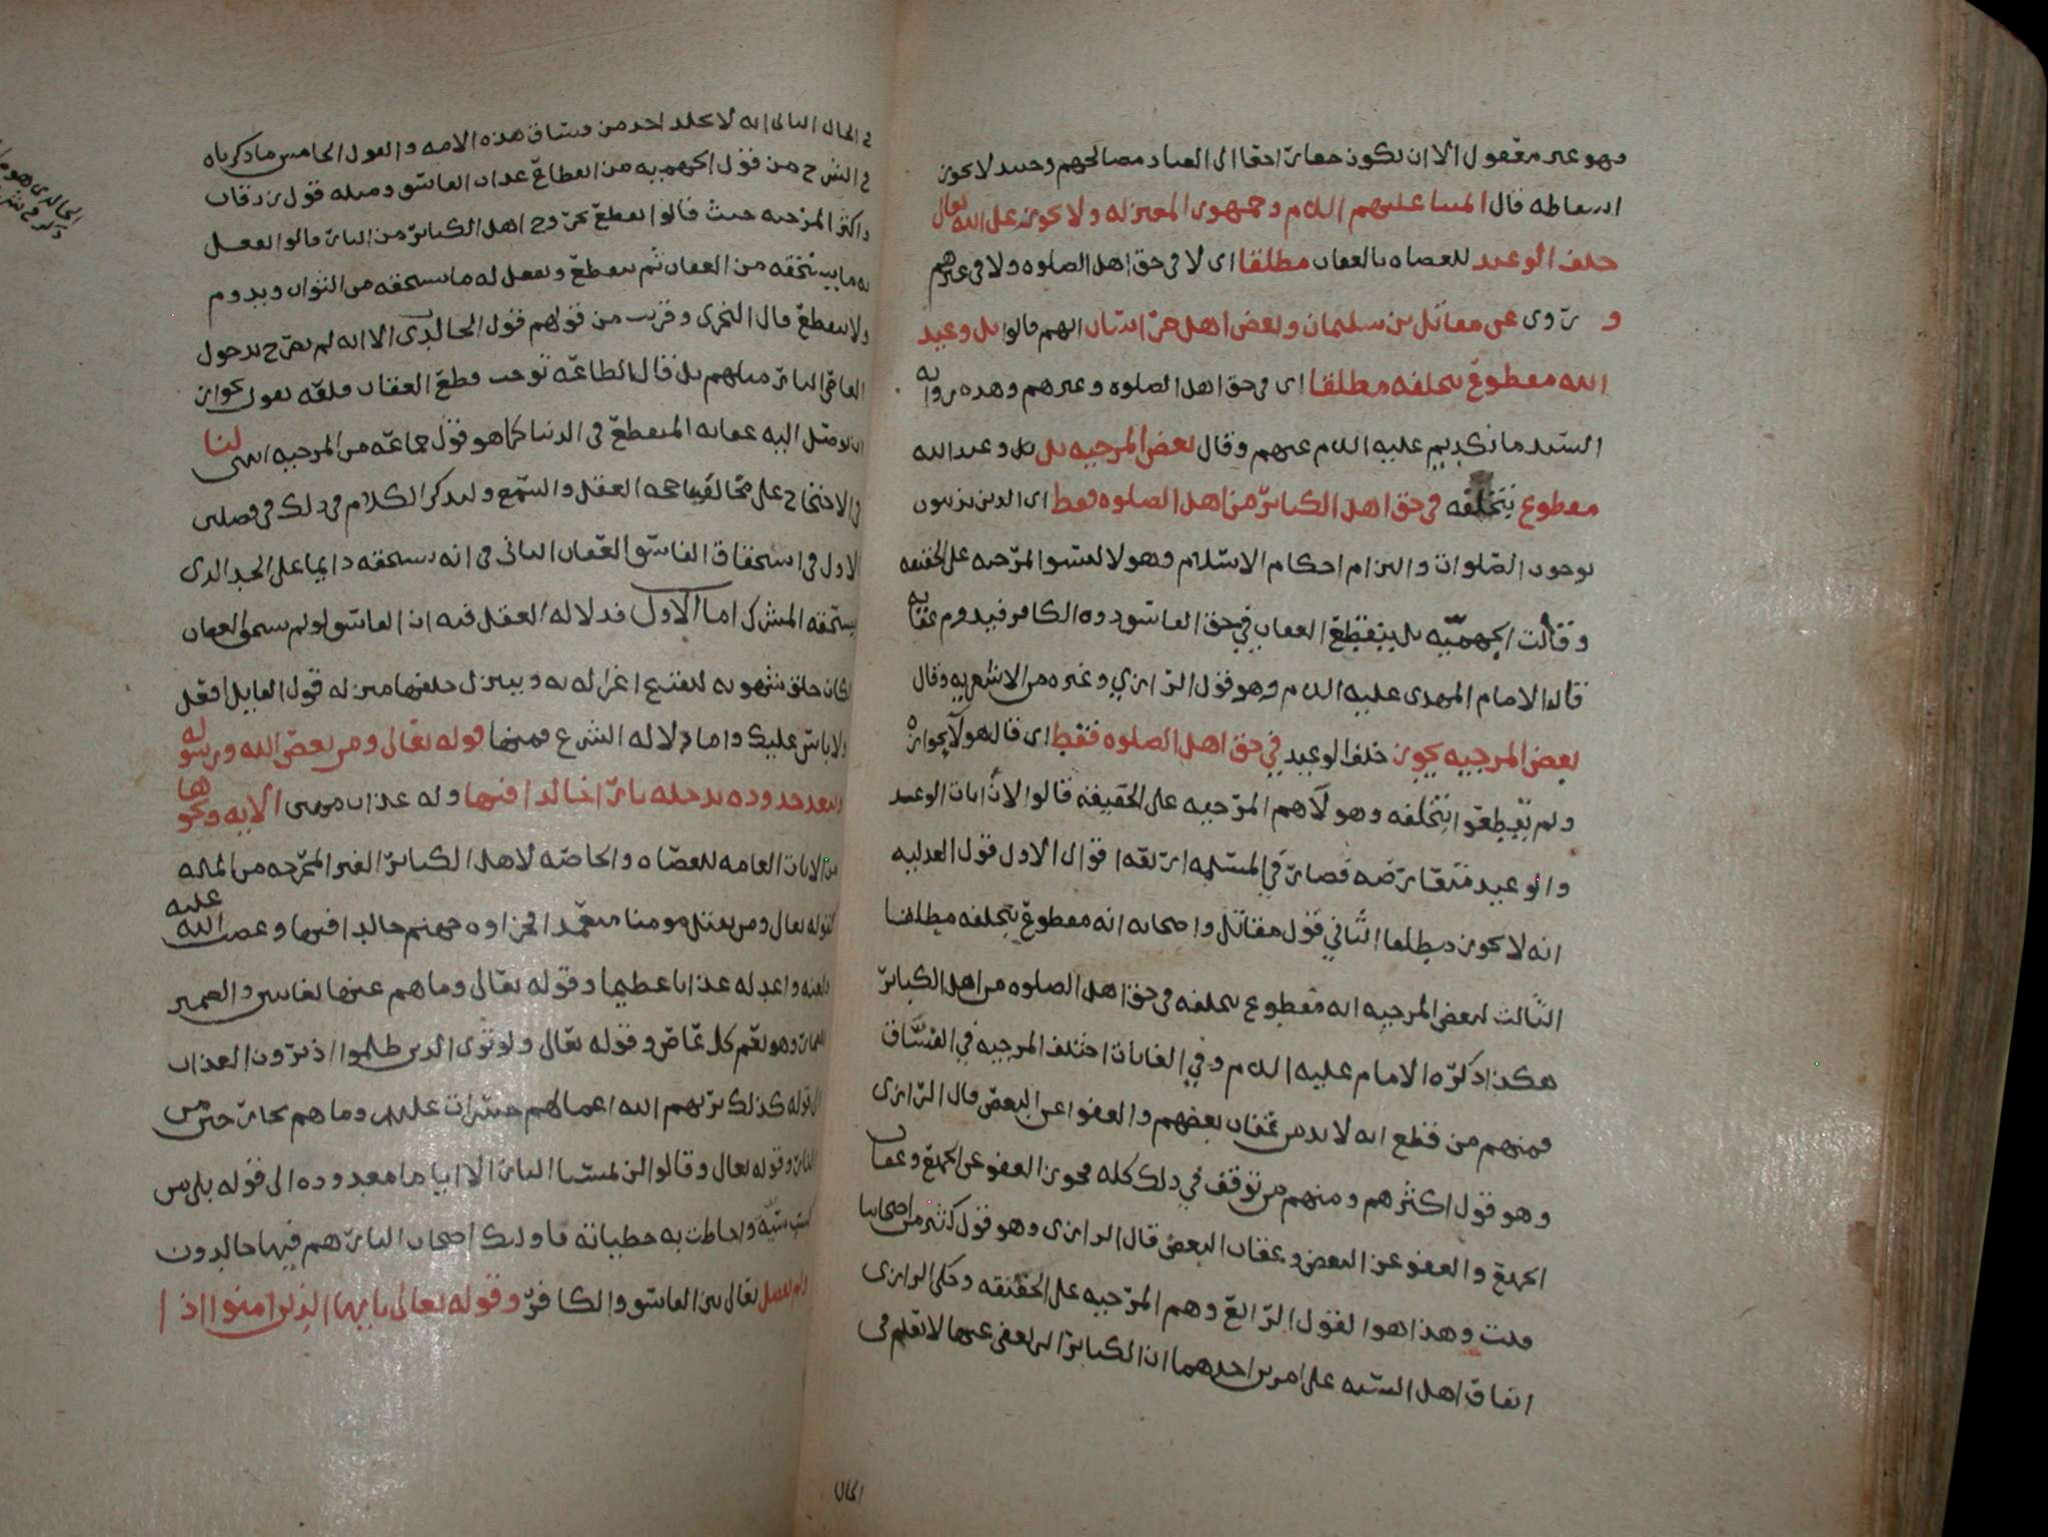 وهو غير معقول الا ان يكون حقا راجعا الى العباد مصالحهم وحينئذ لا يجوز
اسقاطه قال ائمتنا عليهم السلام وجمهور المعتزله ولا يجوز على الله تعالى
خلف الوعيد للعصاه بالعقاب مطلقا اى لا فى حق اهل الصلوه ولا فى غيرهم
و روى عن مقاتل بن سليمان وبعض اهل خراسان انهم قالوا بل وعيد
الله مقطوع بتخلفه مطلقا اى فى حق اهل الصلوه وغيرهم وهذه روايه
السيد مانكديم عليه السلام عنهم وقال بعض المرجيه بل وعيد الله
مقطوع بتخلفه فى حق اهل الكبائر من اهل الصلوه فقط اى الذين يدينون
بوجوب الصلوات والتزام احكام الاسلام وهولا ليسوا المرجيه على الحقيقه
وقالت الجهميه بل ينقطع العقاب في حق الفاسق دون الكافر فيدوم عقابه
قاله الامام المهدى عليه السلام وهو قول الرازي وغيره من الاشعريه وقال
بعض المرجيه يجوز خلف الوعيد في حق اهل الصلوه فقط اى قال هولآ بجوازه
ولم يقطعوا بتخلفه وهولآ هم المرجيه على الحقيقة قالوا لان ايات الوعد
والوعيد متعارضه فصار في المسئله اربعه اقوال الاول قول العدليه
انه لا يجوز مطلقا الثاني قول مقاتل واصحابه انه مقطوع بتخلفه مطلقا
الثالث لبعض المرجيه انه مقطوع بتخلفه فى حق اهل الصلوه من اهل الكبائر
هكذا ذكره الامام عليه السلام وفي الغايات اختلف المرجيه في الفساق
فمنهم من قطع انه لا بد من عقاب بعضهم والعفو عن البعض قال الرازى
وهو قول اكثرهم ومنهم من توقف في ذلك كله فجوز العفو عن الجميع وعقاب
الجميع والعفو عن البعض وعقاب البعض قال الرازى وهو قول كثير من اصحابنا
قلت وهذا هو القول الرابع وهم المرجيه على الحقيقه وحكى الرازى
اتفاق اهل السنه على امرين احدهما ان الكبائر التى يعفى عنها لا تعلم فى
الحال
فى الحال الثانى انه لا يخلد احد من فساق هذه الامه والقول الخامس ما ذكرناه
فى الشرح من قول الجهميه من انقطاع عذاب الفاسق ومثله قول زرقان
واكثر المرجيه حيث قالوا نقطع بخروج اهل الكبائر من النار قالوا يفعل
به ما يستحقه من العقاب ثم ينقطع ويفعل له ما يستحقه من الثواب ويدوم
ولا ينقطع قال النجرى وقريب من قولهم قول الخالدى الا انه لم يصرح بدخول
العاصى النار مثلهم بل قال الطاعه توجب قطع العقاب فلعله يقول بجواز
ان يوصل اليه عقابه المنقطع فى الدنيا كما هو قول جماعه من المرجيه انتهى لنا
فى الاحتجاج على مخالفينا حجه العقل والسمع ولنذكر الكلام فى ذلك فى فصلين
الاول فى استحقاق الفاسق العقاب الثانى فى انه يستحقه دايما على الحد الذى
يستحقه المشرك اما الاول فدلاله العقل فيه ان الفاسق لو لم يستحق العقاب
لكان خلق شهوه القبيح اغرا له به وينزل خلقها منزله قول القايل افعل
ولا باس عليك واما دلاله الشرع فمنها قوله تعالى ومن يعص الله ورسوله
ويتعد حدوده يدخله نارا خالدا فيها وله عذاب مهين الايه ونحوها
من الايات العامه للعصاه والخاصه لاهل الكبائر الغير المخرجه من المله
كقوله تعالى ومن يقتل مومنا متعمدا فجزاوه جهنم خالدا فيها وغضب الله عليه
ولعنه واعد له عذابا عظيما وقوله تعالى وما هم عنها بغائبين والضمير
للفجار وهو يعم كل عاص وقوله تعالى ولو ترى الذين ظلموا اذ يرون العذاب
الى قوله كذلك يريهم الله اعمالهم حسرات عليهم وما هم بخارجين من
النار وقوله تعالى وقالوا لن تمسنا النار الا اياما معدوده الى قوله بلى من
كسب سيئة واحاطت به خطيأته فاولئك اصحاب النار هم فيها خالدون
ولم يفصل تعالى بين الفاسق والكافر وقوله تعالى يايها الذين امنوا اذا